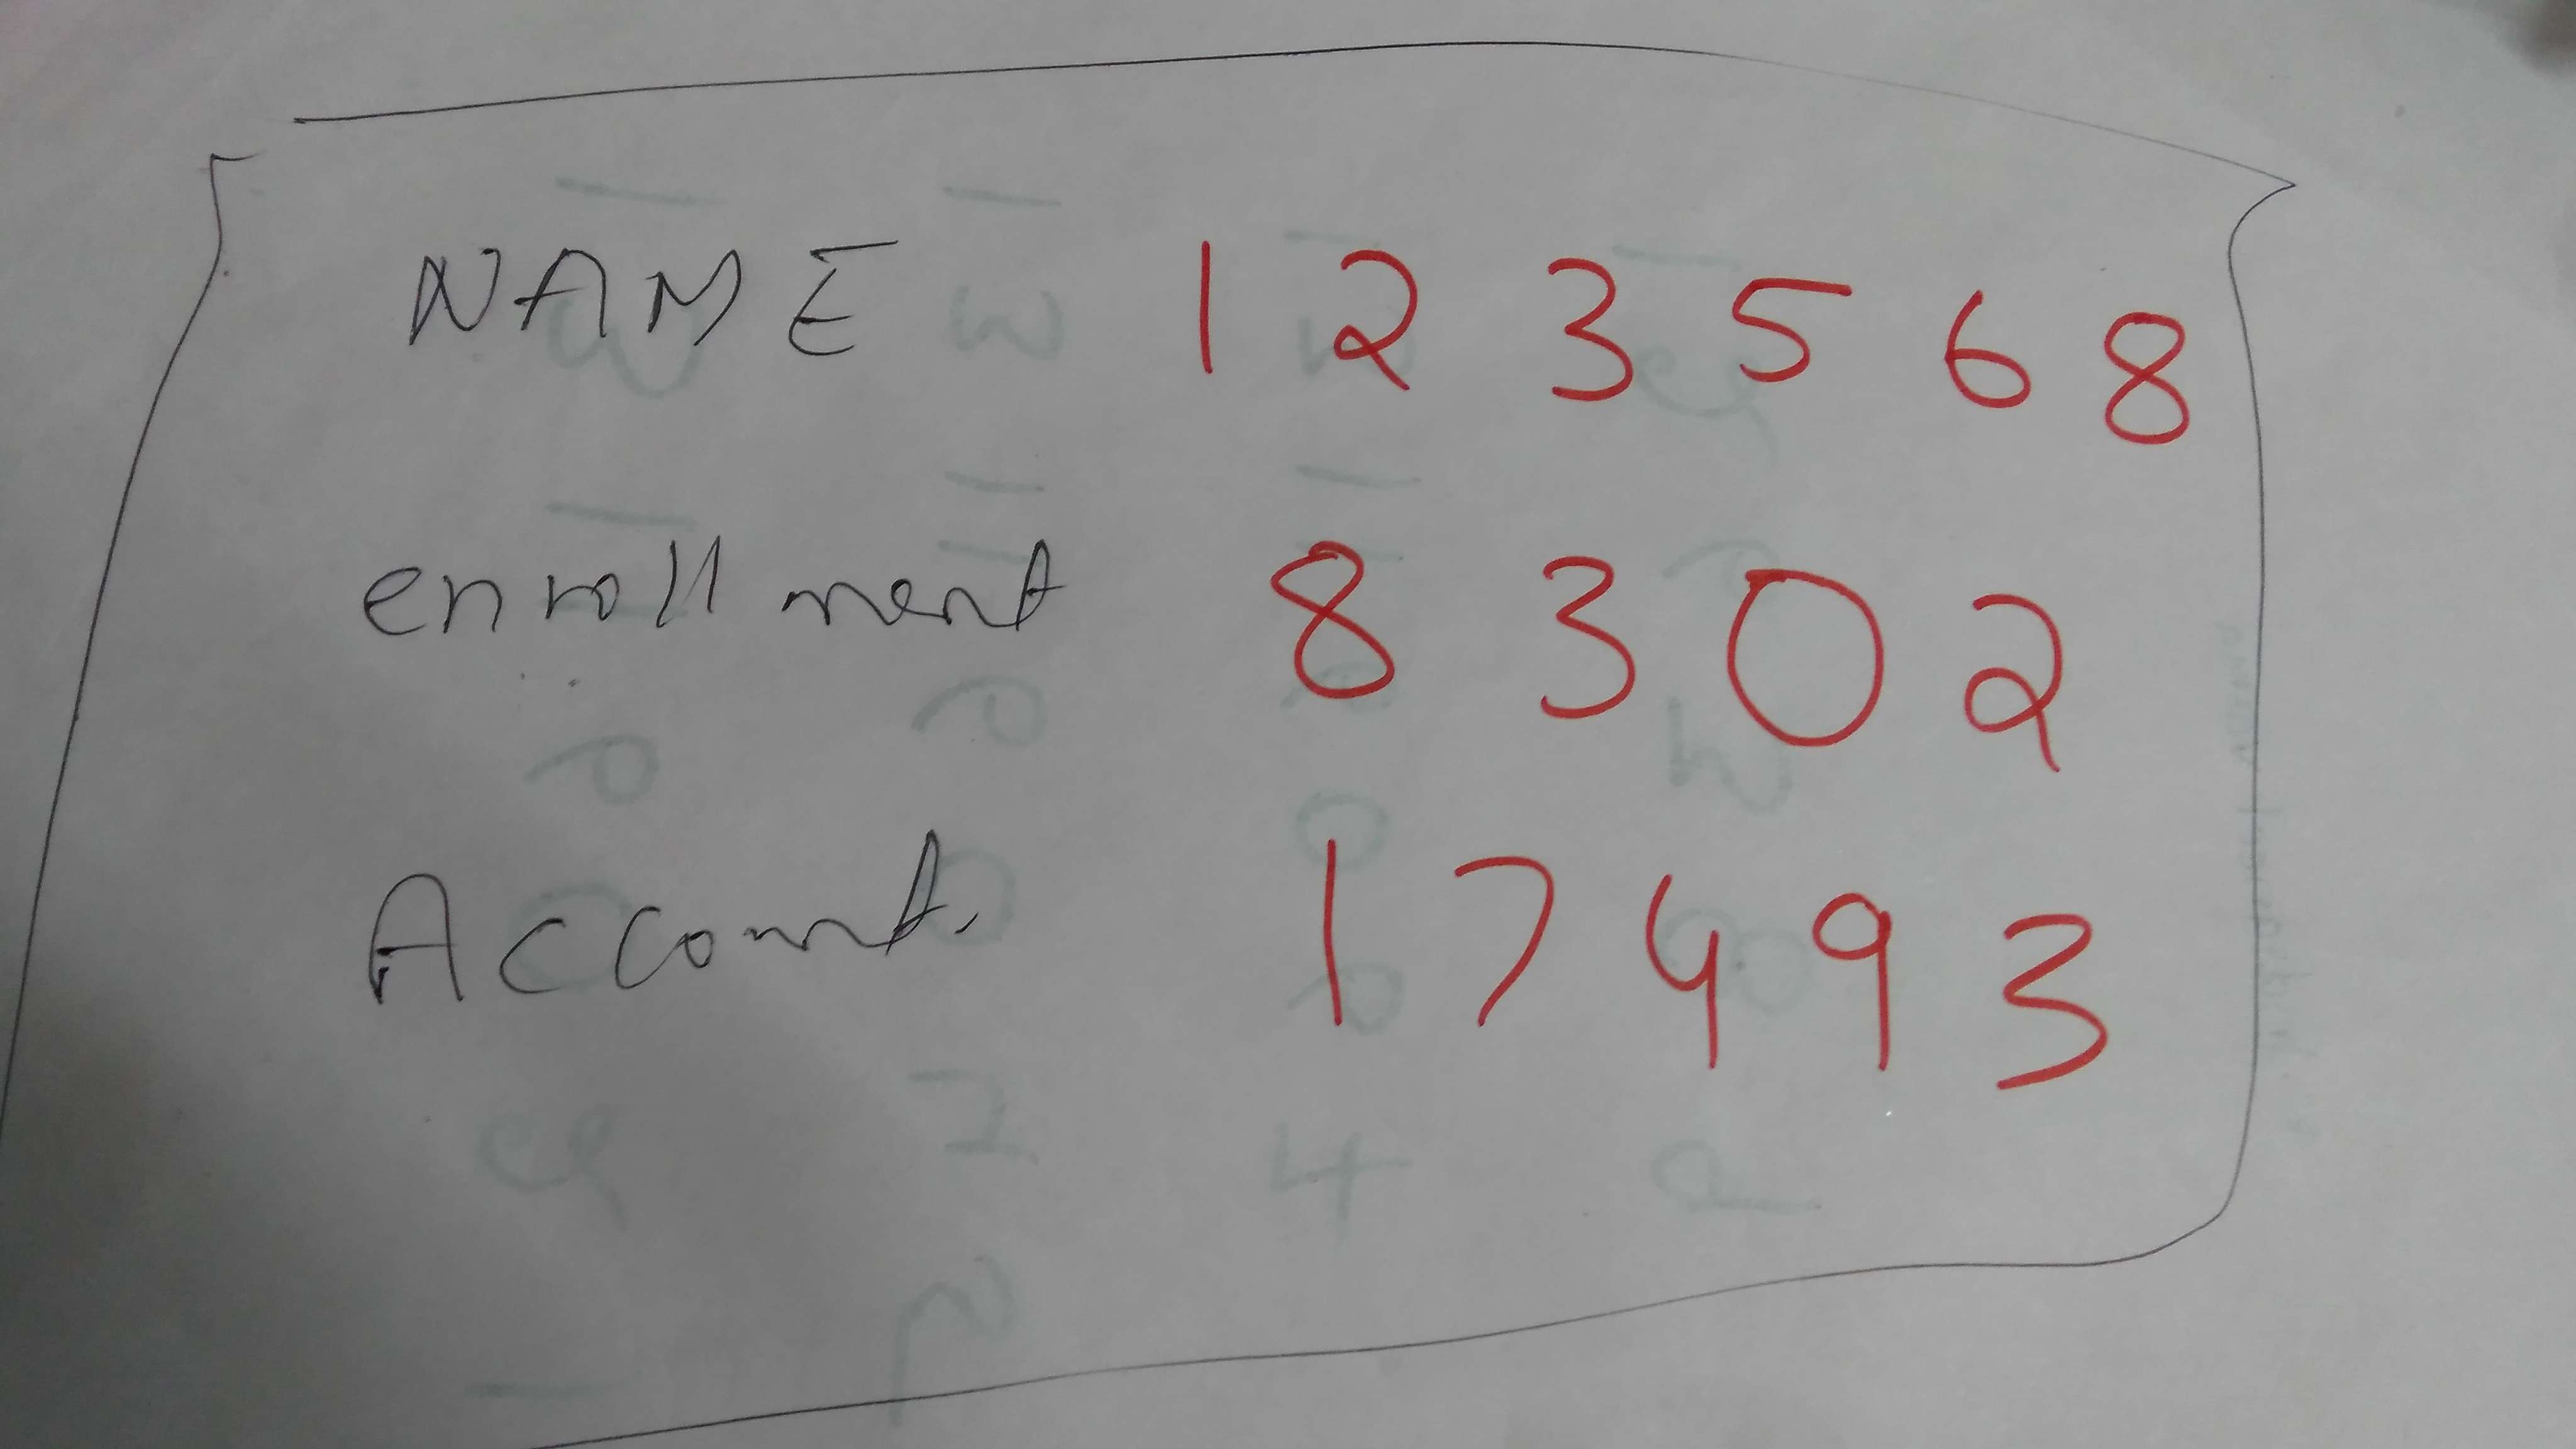 NAME 1 2 3 5 6 8
enrollment 8 3 0 2
Account. 1 7 4 9 3